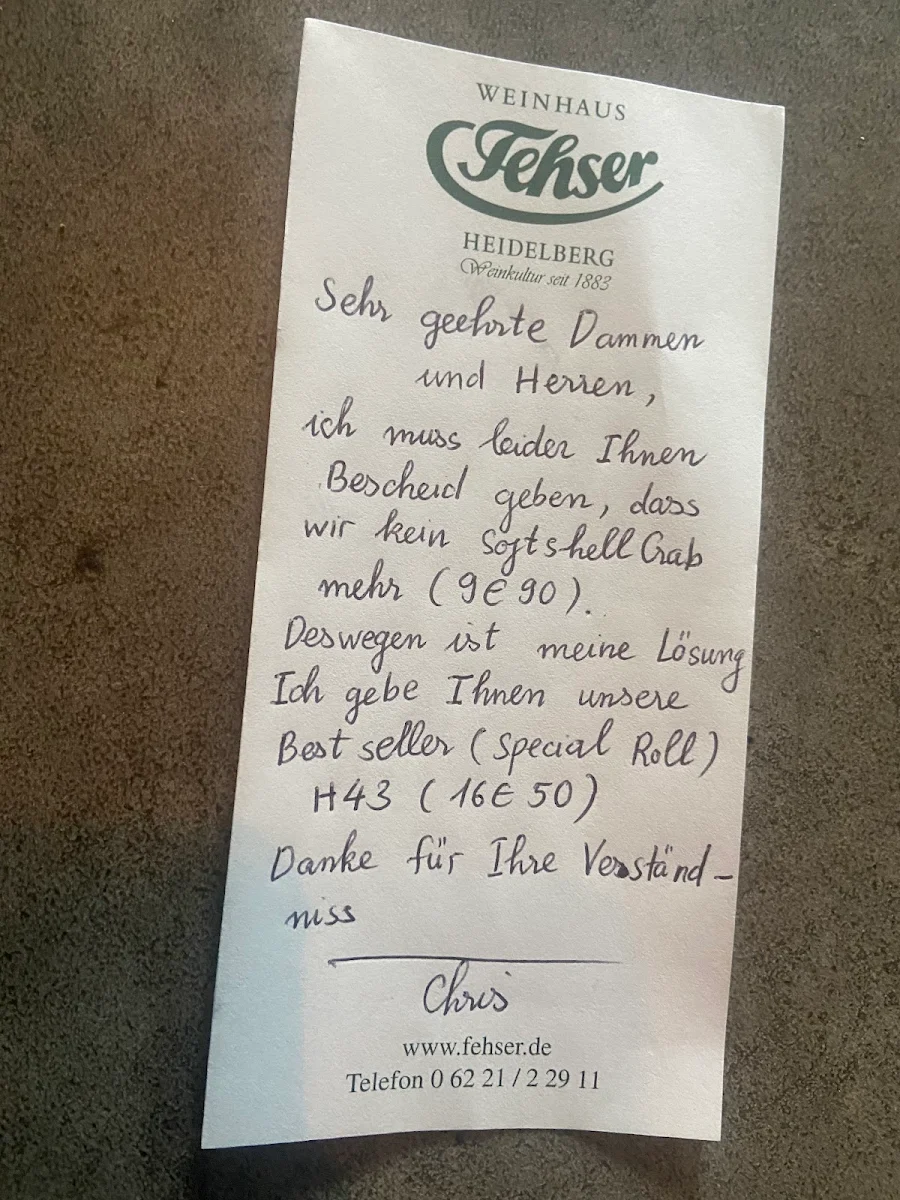 WEINHAUS
Fehser
HEIDELBERG
Weinkultur seit 1883
Sehr geehrte Dammen
und Herren,
ich muss leider Ihnen
Bescheid geben, dass
wir kein Softshell Crab
mehr (9€90).
Deswegen ist meine Lösung
Ich gebe Ihnen unsere
Best seller (Special Roll)
H43 (16€50)
Danke für Ihre Verständ-
niss
Chris
www.fehser.de
Telefon 0 62 21 / 2 29 11